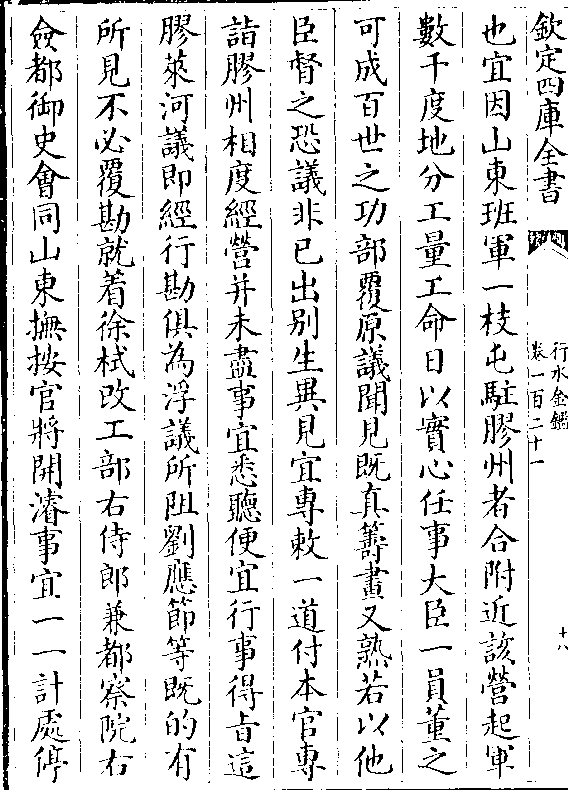 欽定四庫全書
行水金鑑
卷一百二十一
十八
也宜因山東班軍一枝屯駐膠州者合附近該營起軍
數千度地分工量工命日以實心任事大臣一員董之
可成百世之功部覆原議聞見既真籌畫又熟若以他
臣督之恐議非已出别生異見宜專敕一道付本官專
詣膠州相度經營并未盡事宜悉聽便宜行事得旨這
膠萊河議即經行勘俱為浮議所阻劉應節等既的有
所見不必覆勘就着徐栻改工部右侍郎兼都察院右
僉都御史會同山東撫按官將開濬事宜一一計處停